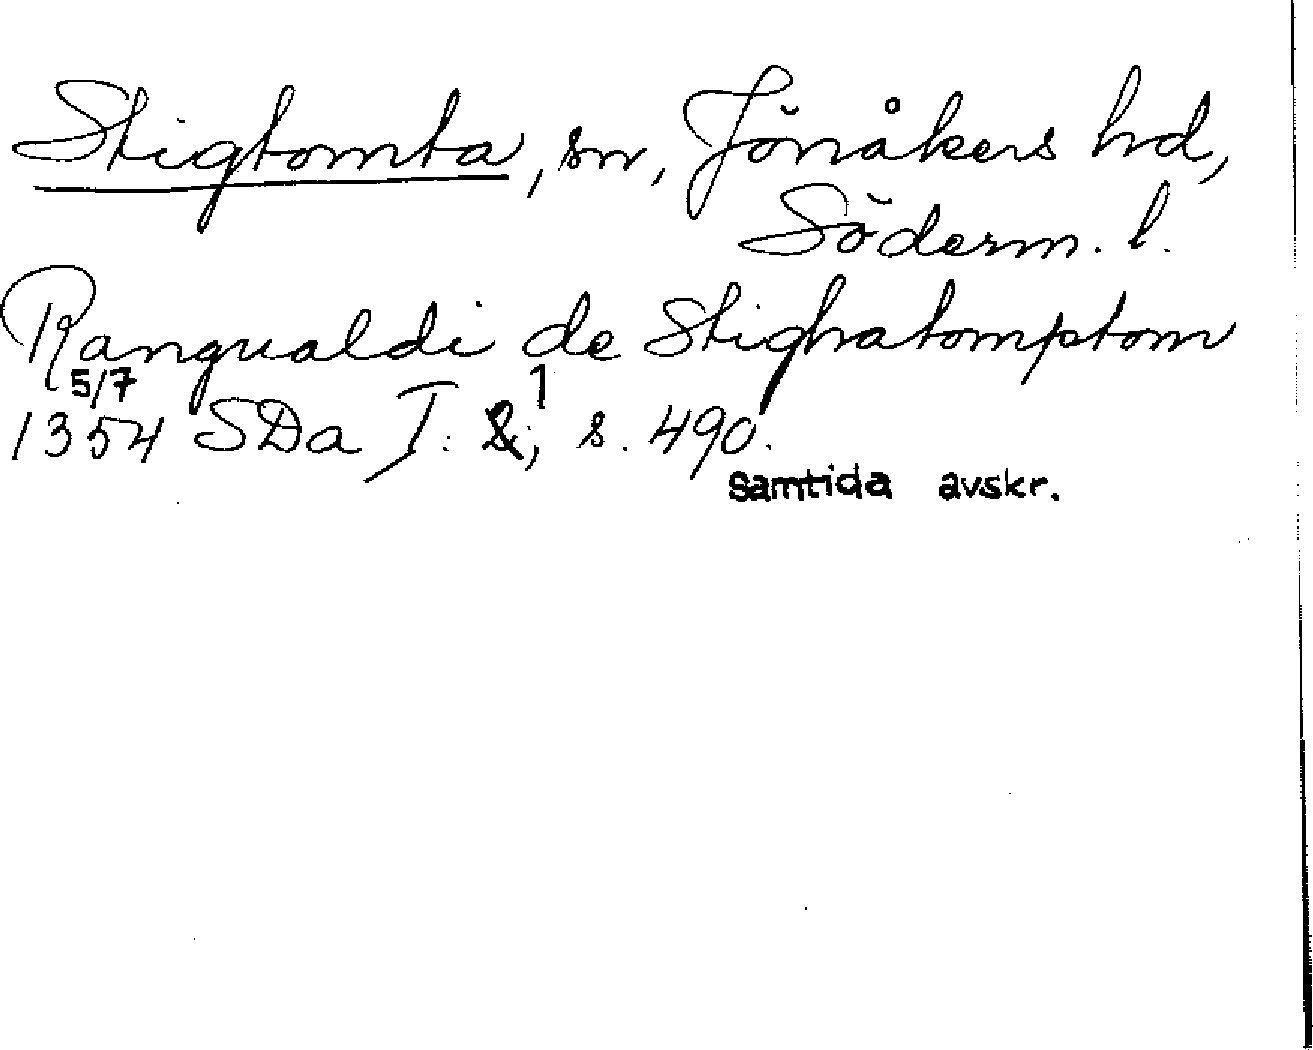 Stigtomta, sn, Jönåkers hd,
Söderm. l.
Rangualdi de Stighatomptom
5/7 1
1354 SDa I: 2, s. 490.
Samtida avskr.